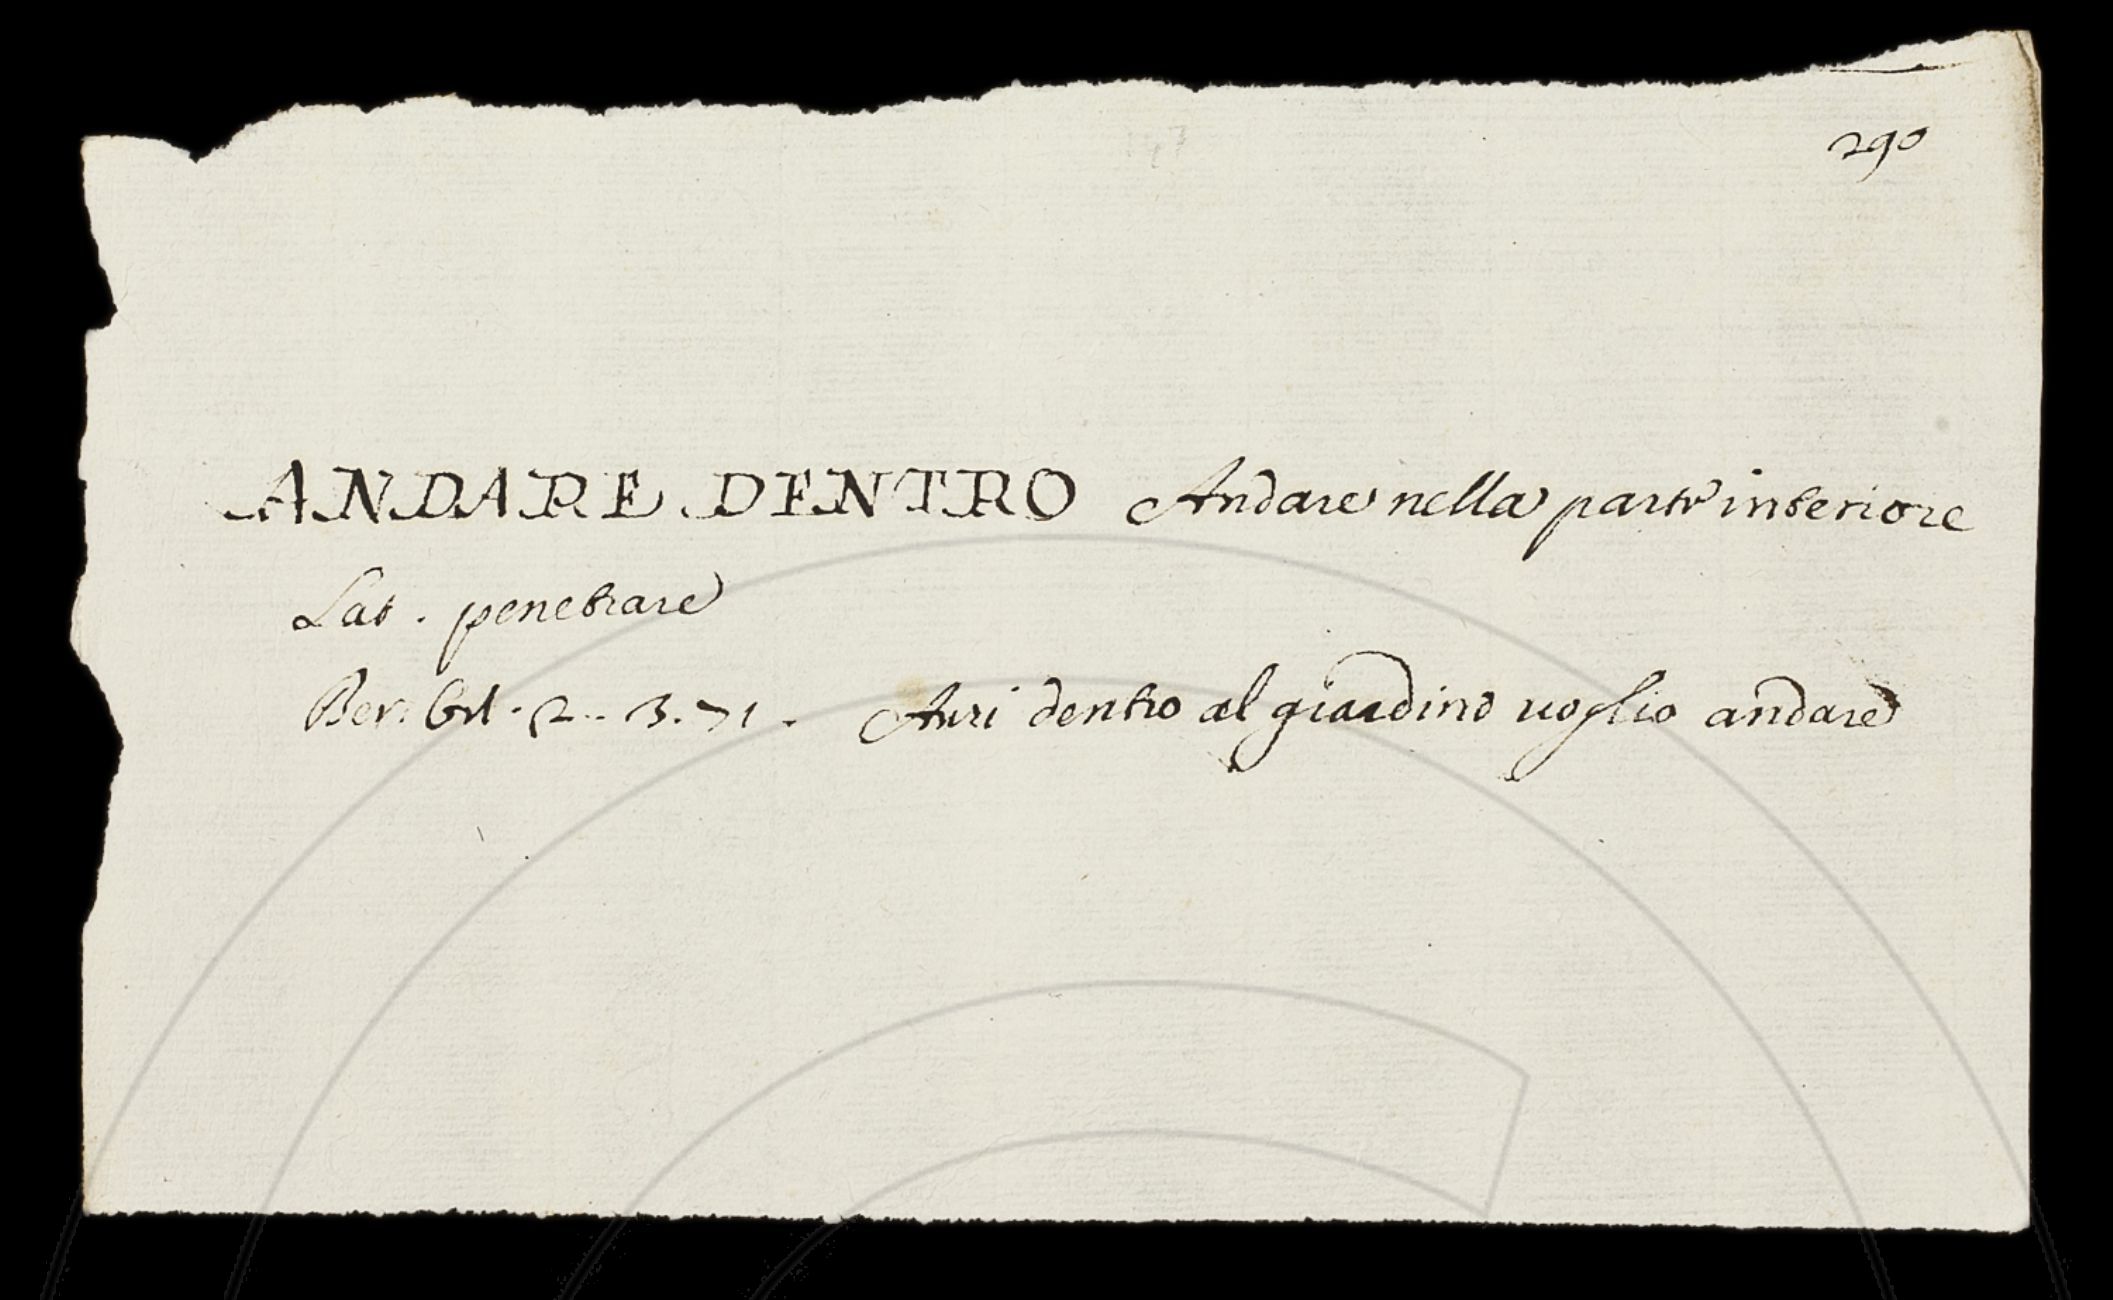 290
ANDARE DENTRO Andare nella parte interiore
Lat. penetrare
Ber. Orl. 2. 3. 71. Anzi dentro al giardino uoglio andare